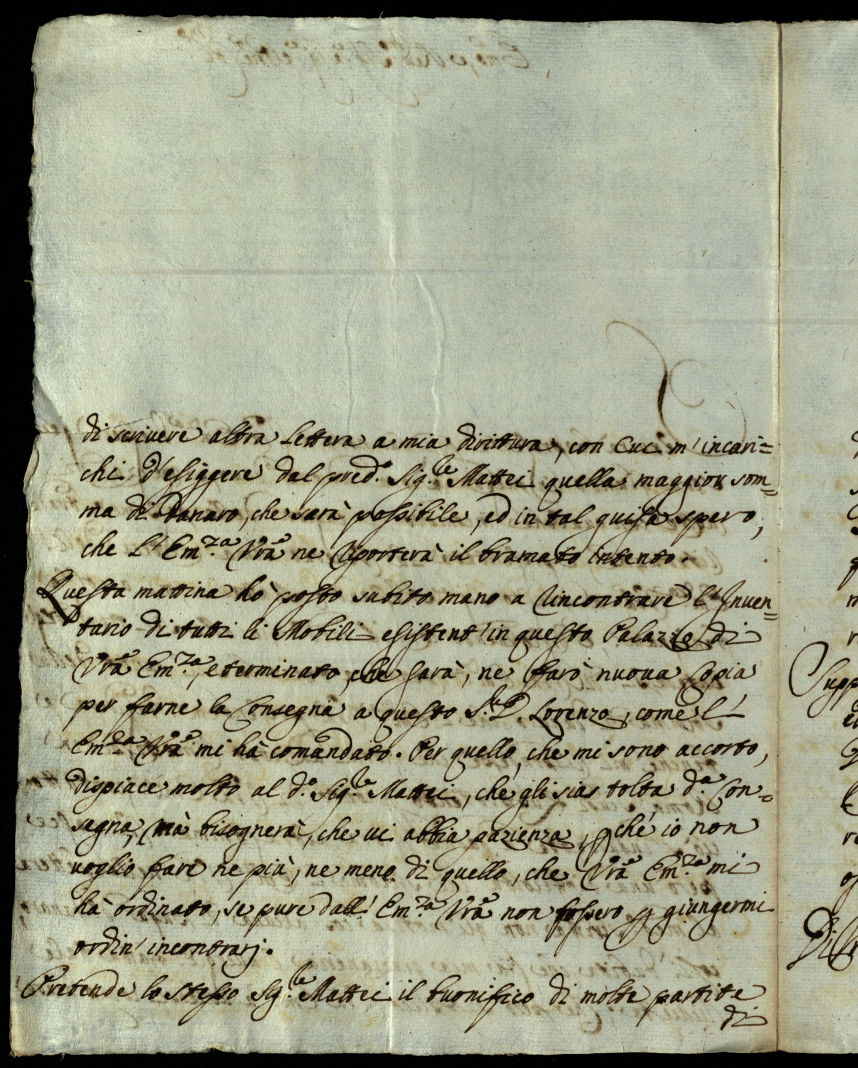 di scrivere altra lettera a mia dirittura, con cui m'incari=
chi d'esiggere dal pred.º Sig.le Mattei quella maggior som=
ma di danaro, che sarà possibile, ed in tal guisa spero,
che l'Em.za Vrã ne riporterà il bramato intento.
Questa mattina hò posto subito mano a rincontrare l'Inven=
tario di tutti li Mobili esistent'in questo Palazzo di
Vrã Em.za, e terminato, che sarà, ne farò nuova Copia
per farne la Consegna a questo S.r D. Lorenzo, come l'
Em.za Vrã mi hà comandato. Per quello, che mi sono accorto,
dispiace molto al d.º Sig.le Mattei, che gli sia tolta d.ª Con=
segna, mà bisognerà, che vi abbia pazienza, pché io non
voglio fare ne più, ne meno di quello, che Vrã Em.za mi
hà ordinato, se pure dall'Em.za Vrã non fossero p giungermi
ordin'incontrarj.
Pretende lo stesso Sig.le Mattei il buonifico di molte partite
di